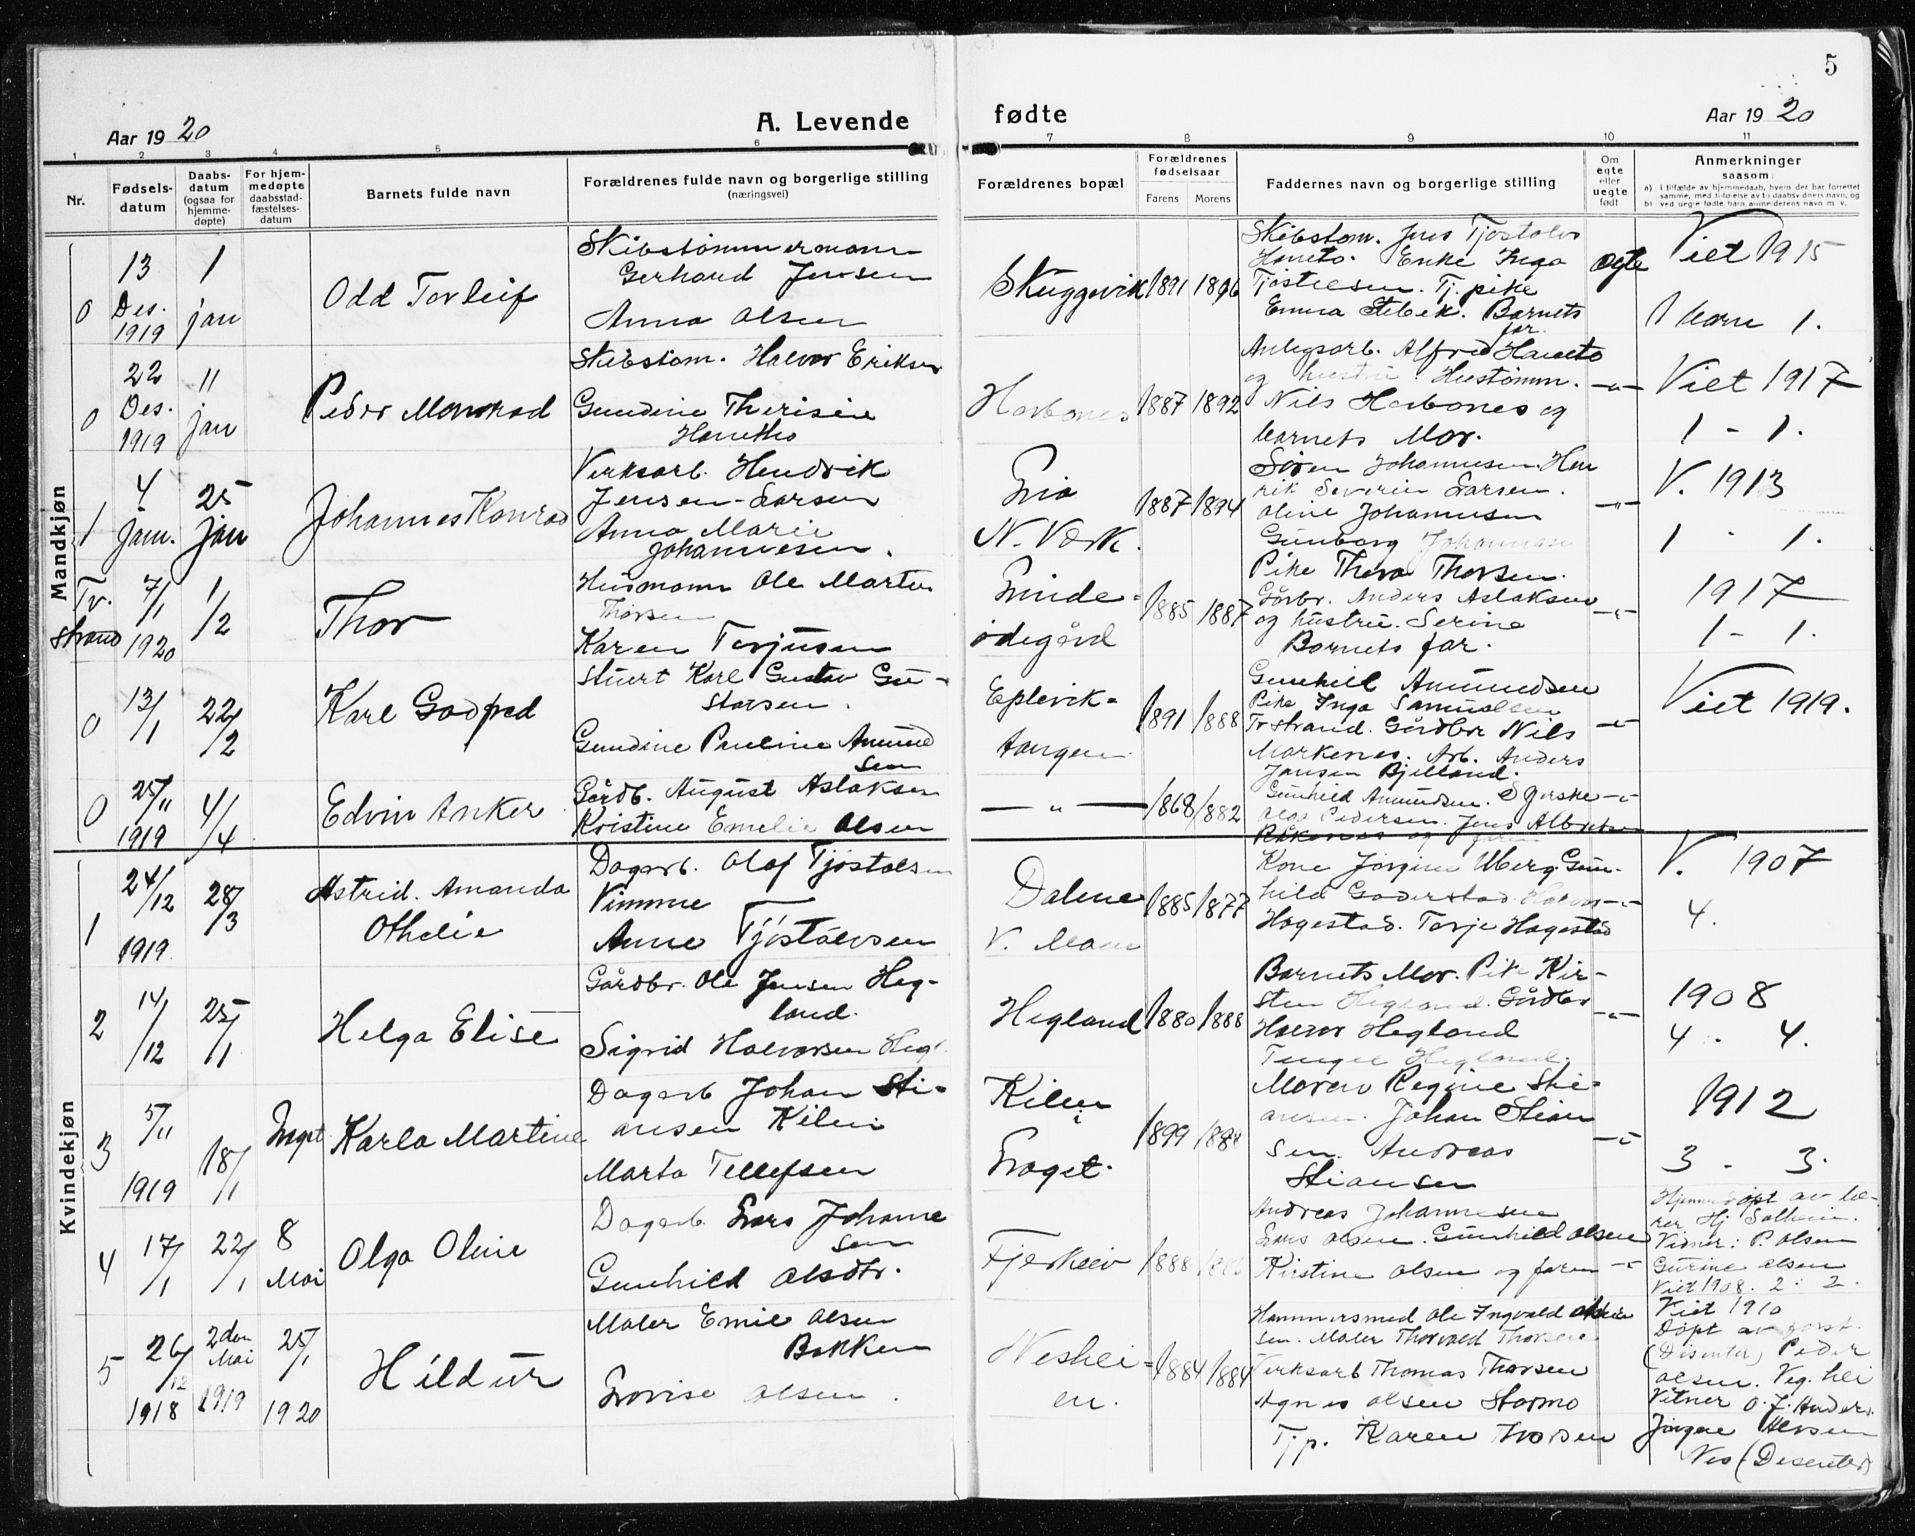 5
Aar 1920
A. Levende fødte
Aar 1920
1 2 3 4 5 6 7 8 9 10 11
Nr.
Fødsels-datum
Daabs-datum (ogsaa for hjemme-døpte)
For hjem-medøpte daabsstad-fæstelses-datum
Barnets fulde navn
Forældrenes fulde navn og borgerlige stilling
(næringsvei)
Forældrenes bopæl
Forældrenes fødselsaar
Farens Morens
Faddernes navn og borgerlige stilling
Om egte eller uegte født
Anmerkninger
saasom:
a) i tilfælde av hjemmedaab, hvem der har forrettet samme, med tilføielse av daabsvidners navn, og
b) ved uegte fødte barn anmelderens navn m. v.
Mandkjøn
0 13 Des. 1919 1 jan
Odd Torleif
Skibstømmermann
Gerhard Jensen
Anna Olsen
Skuggevik 1891 1896
Skibstøm. Jens Tjøstolvs
Haneto. Enke Inga
Tjøstelsen. Tj. pike
Emma Stebek. Barnets
far.
egte
Viet 1915
1 barn 1.
0 22 Des. 1919 11 jan
Peder Monrad
Skibstøm. Halvor Eriksen
Gundine Therisie
Hanetho
Horbones 1887 1892
Anlegsarb. Alfred Haneto
og hustru. Hustømm.
Nils Horbones og
barnets Mor.
—"—
Viet 1917
1 - 1.
1 4 Jan. 25 Jan
Johannes Konrad
Verksarb. Hendrik
Jensen-Larsen
Anna Marie
Johannesen.
N. Værk. 1887 1894
Søren Johannesen. Hen
rik Severin Larsen.
Oline Johannesen
Gunborg Johannesen
—"—
V. 1913
1 - 1.
Tv. strand 7/1 1920 1/2
Thor
Husmann Ole Martin
Thorsen
Karen Terjusen
Grinde-
ødegård 1885 1887
Pike Thora Thorsen.
Gårbr. Anders Aslaksen
og hustru. Serine
Barnets far.
—"—
1917
1 - 1.
0 13/1 22/2
Karl Godfred
Stuert Karl Gustav Gu-
stavsen.
Gundine Pauline Amund
sen
Eplevik-
tangen 1891 1888
Gunhild Amundsen
Pike Inga Samuelsen
Tv strand. Gårdbr Nils
Markenes. Arb. Anders
Jansen Bjelland.
—"—
Viet 1919.
0 25/11 1919 4/4
Edvin Anker
Gårdb. August Aslaksen
Kristine Emelie Olsen
—"— 1868 1882
Gunhild Amundsen.
Olga Pedersen. Jens Albretsen
Råkenes og faren
—"—
Kvindekjøn
1 24/12 1919 28/3
Astrid. Amanda
Othelie
Dagarb. Olaf Tjøstolsen
Vimme
Anne Tjøstolvsen
Dalene
V. Moen 1885 1877
Kone Jørgine Uberg. Gun-
hild Goderstad.
Hagestad. Terje Hagestad
—"—
V. 1907
4.
2 14/12 25/1
Helga Elise
Gårdbr. Ole Jensen Heg-
land.
Sigrid Halvorsen Hegl
Hegland 1880 1888
Barnets Mor. Pike Kir-
sten Hegland. Gårdbr
Halvor Hegland
Hegland.
—"—
1908
4 - 4.
3 5/11 1919 18/1
Karla Martine
Dagarb Johan Sti-
ansen Kilen
Marta Tellefsen
Kilen
i
1899
Moren Regine Sti-
ansen. Johan Stian
sen. Andreas
Stiansen
—"—
1912
3 - 3.
4 17/1 22/1 8 Mai
Olga Oline
Dagarb. Lars Johanne
sen
Gunhild Olsdtr.
Fjerkleiv 1888
Andreas Johannesen
Lars Olsen. Gunhild Olsen
Kirstine Olsen og faren
—"—
Hjemmedøpt av læ-
rer Hj Solheim.
Vidner: P. Olsen
Gurine Olsen
Viet 1908. 2 : 2.
5 26/12 1918 2den Mai 1919 25/1 1920
Hildur
Maler Emil Olsen
Bakken
Lovise Olsen.
Neshei-
en. 1884 1884
Hammersmed Ole Ingvald
sen. Maler Thorvald Thorsen
Verksarb Thomas Thorsen
Agnes Olsen Stormo
Tj p. Karen Thorsen
Viet 1910
Døpt av
(Disenter) Peder
Olsen. Veg. hei
Vitner O. J. Anders.
Nes (Desenter)